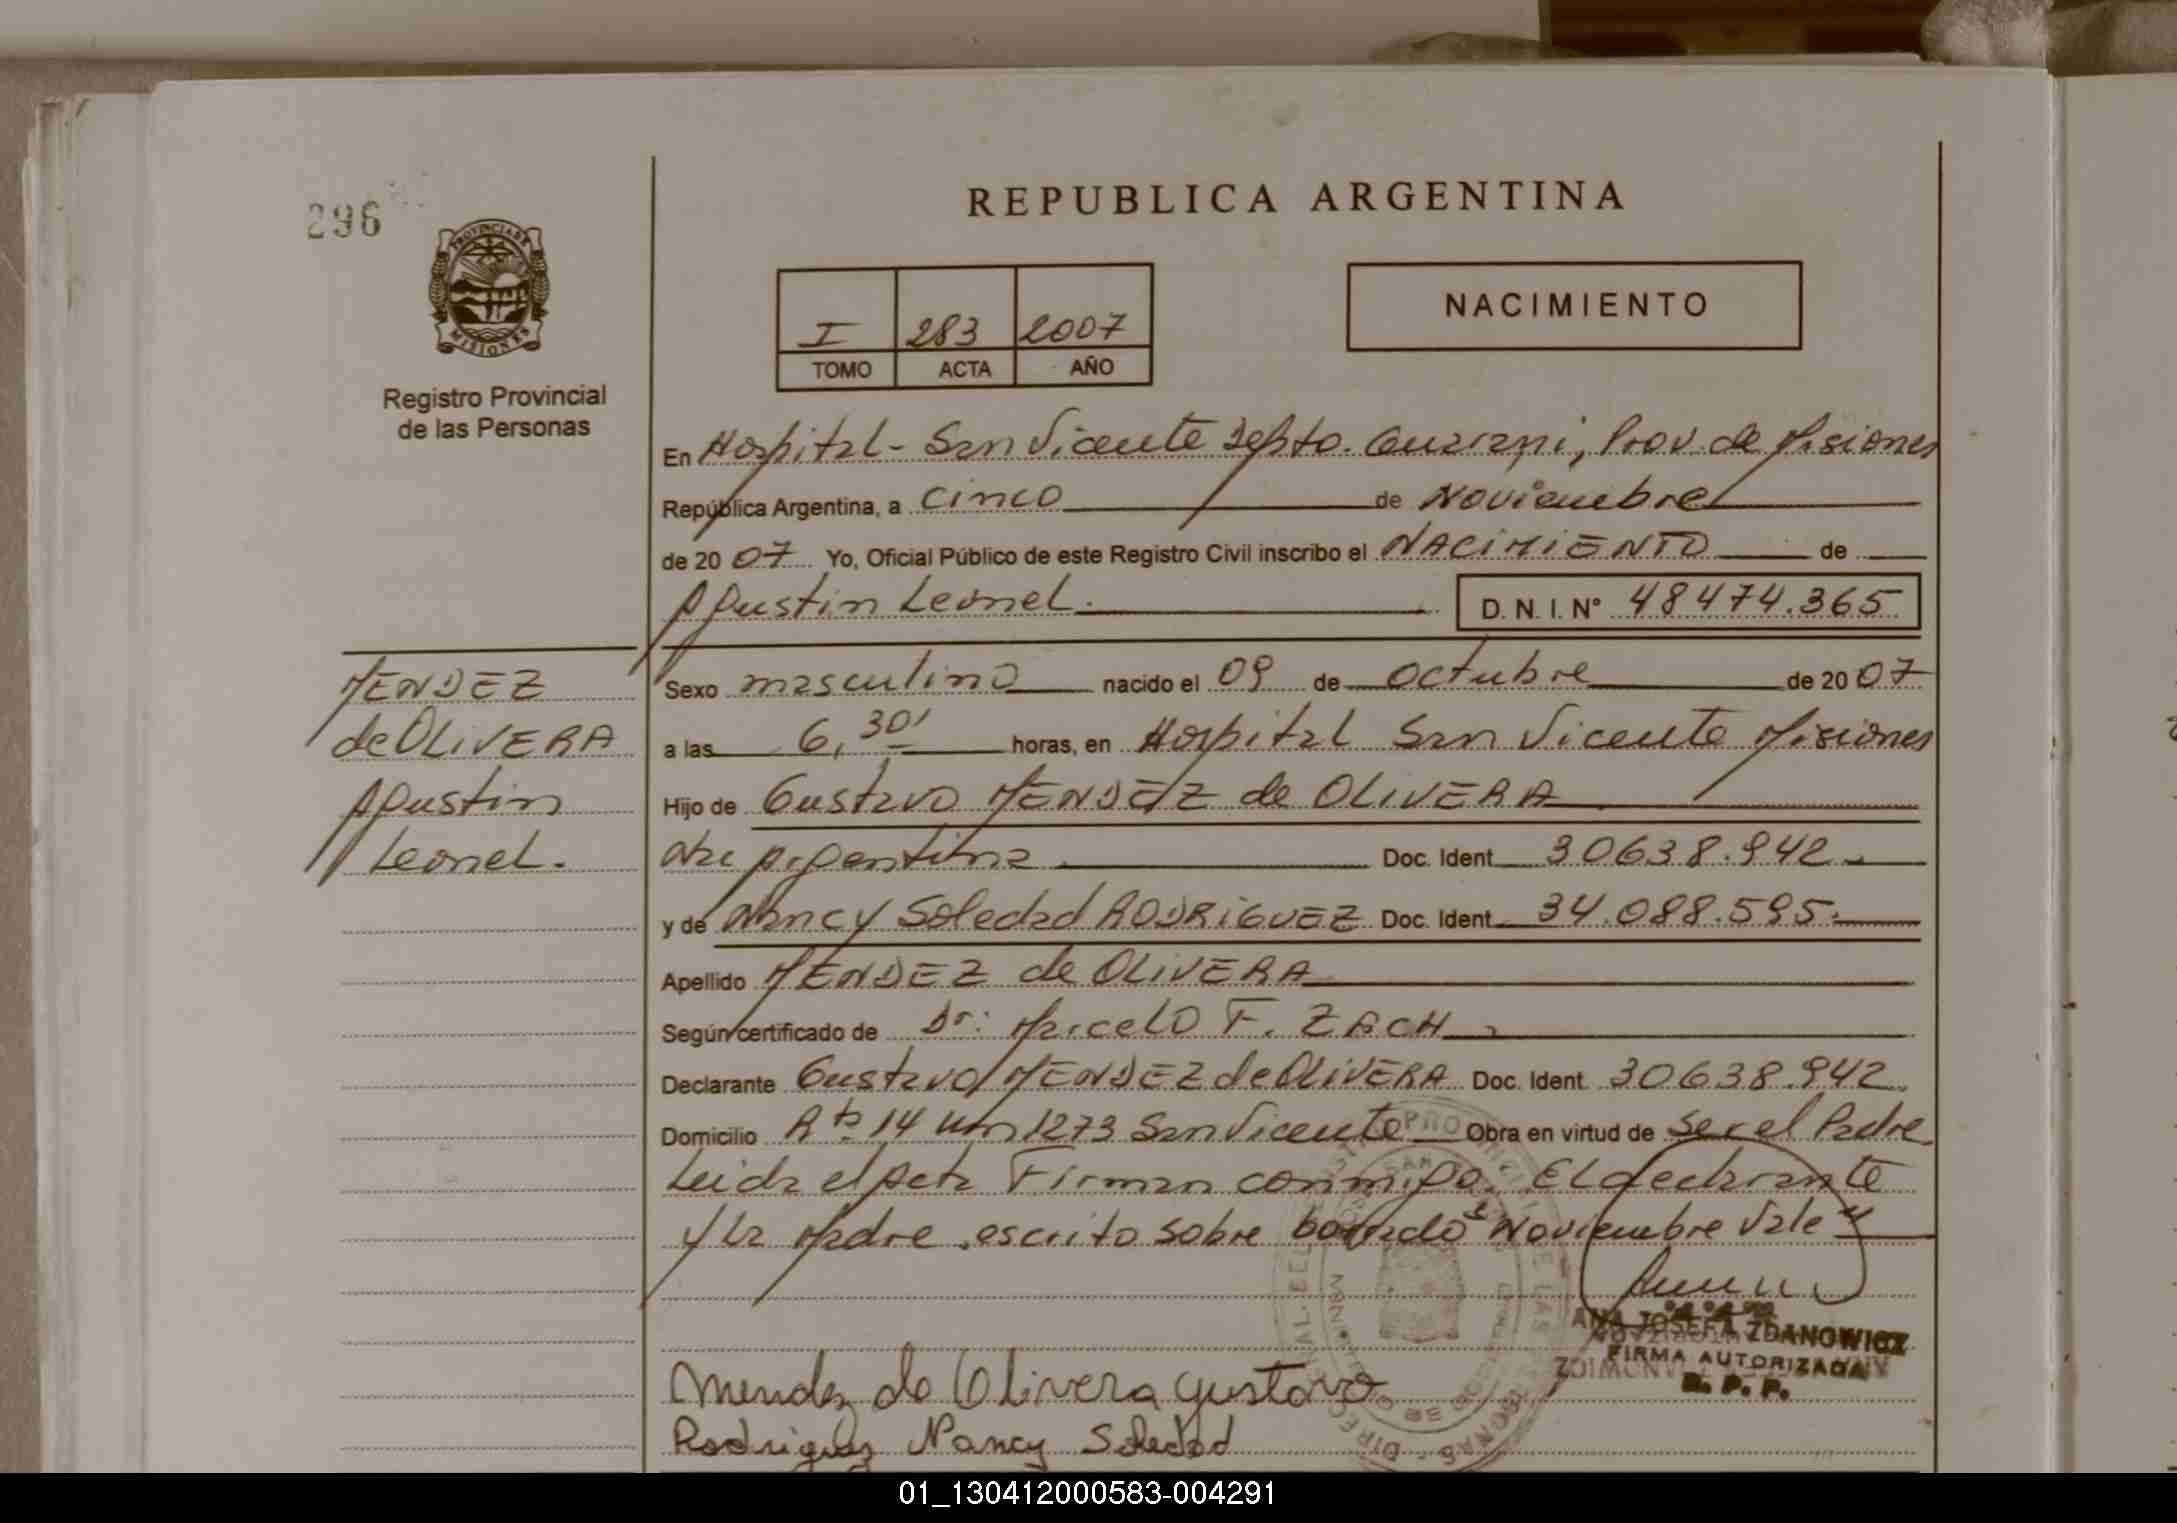 296
REPUBLICA ARGENTINA
PROVINCIA DE
MISIONES
Registro Provincial
de las Personas
I 283 2007
TOMO ACTA AÑO
NACIMIENTO
En Hospital - San Vicente Depto. Guarani, Prov. de Misiones
República Argentina, a cinco de Noviembre
de 2007 Yo, Oficial Público de este Registro Civil inscribo el NACIMIENTO de
Agustin Leonel.
D. N. I. N° 48474.365
MENDEZ
de OLIVERA
Agustin
Leonel.
Sexo masculino nacido el 09 de octubre de 2007
a las 6,30' horas, en Hospital San Vicente Misiones
Hijo de Gustavo MENDEZ de OLIVERA
Argentina Doc. Ident 30638.942
y de Nancy Soledad RODRIGUEZ Doc. Ident 34.088.595.
Apellido MENDEZ de OLIVERA
Según certificado de Dr: Marcelo F. ZACH
Declarante Gustavo MENDEZ de OLIVERA Doc. Ident 30638.942
Domicilio Rta 14 Km 1273 San Vicente Obra en virtud de ser el Padre
Leida el Acta Firman conmigo. El declarante
y la Madre. escrito sobre borrado Noviembre Vale
ANA JOSEFA ZDANOWICZ
FIRMA AUTORIZADA
R. P. P.
Mendez de Olivera Gustavo
Rodriguez Nancy Soledad
01_130412000583-004291